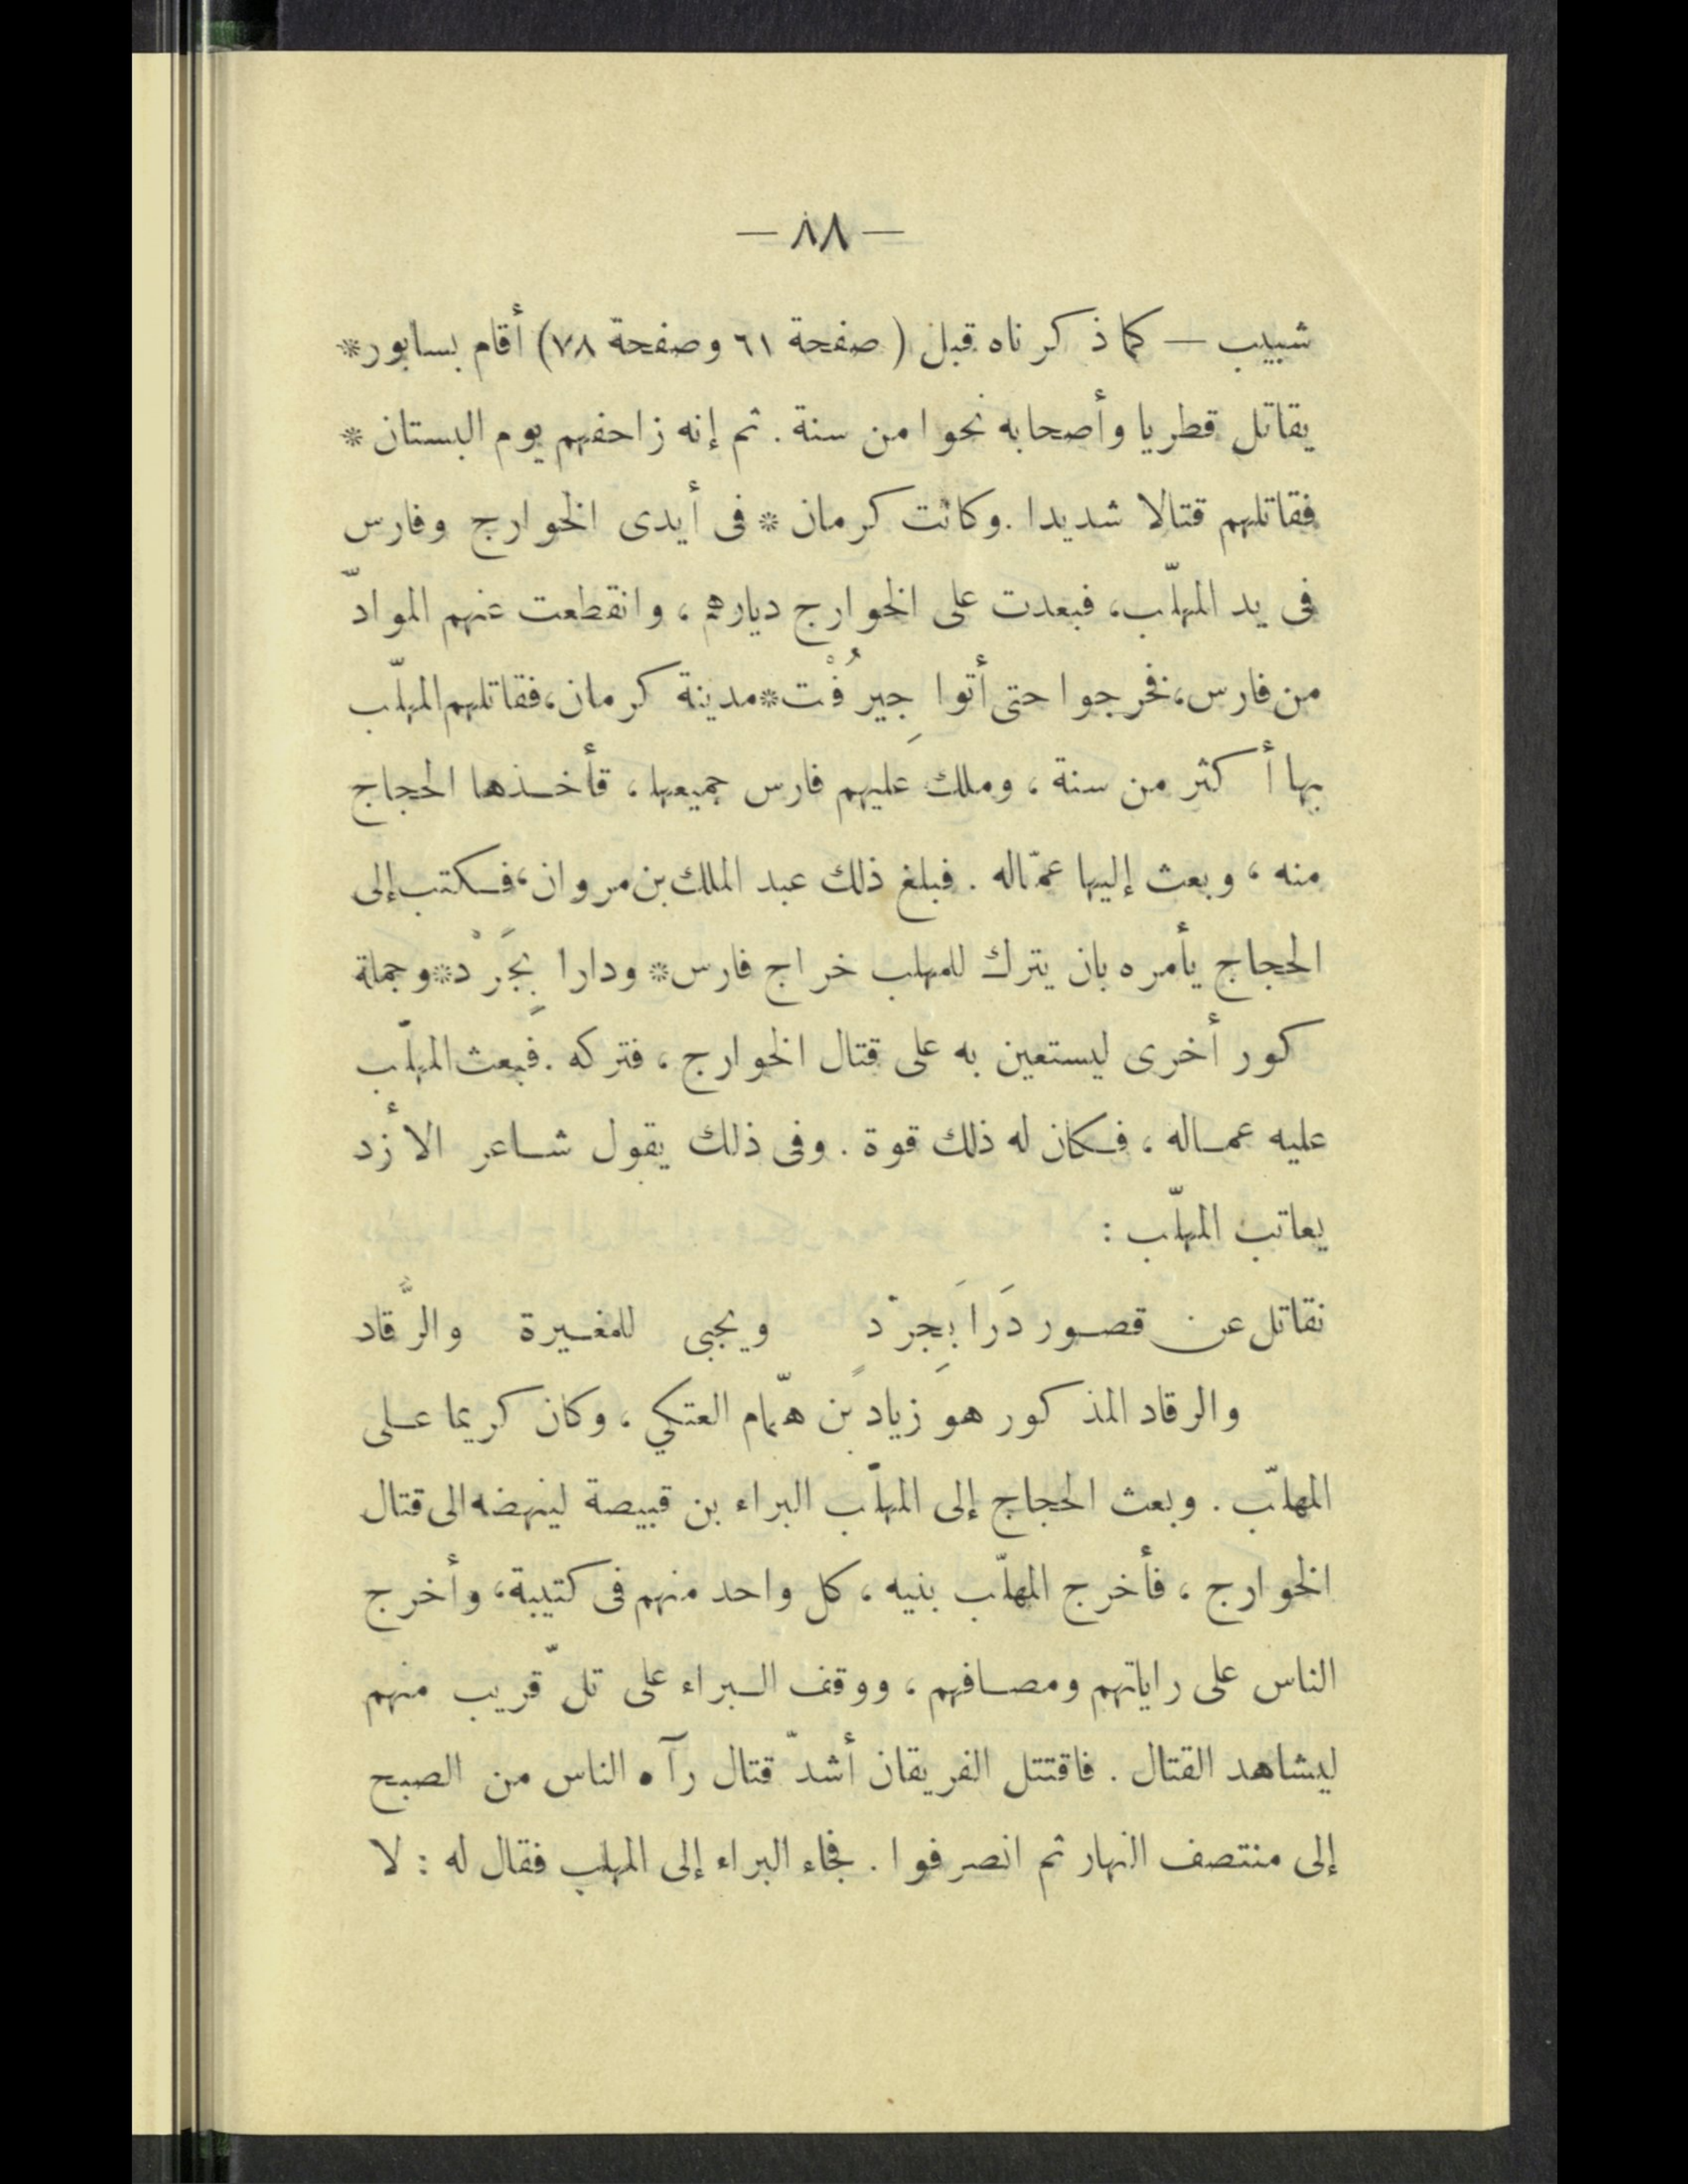 — ٨٨ —
شبيب — كما ذكرناه قبل ( صفحة ٦١ وصفحة ٧٨) أقام بسابور*
يقاتل قطريا وأصحابه نحوا من سنة . ثم إنه زاحفهم يوم البستان *
فقاتلهم قتالا شديدا . وكانت كرمان * فى أيدى الخوارج وفارس
فى يد المهلّب، فبعدت على الخوارج ديارهم ، وانقطعت عنهم الموادّ
من فارس، فخرجوا حتى أتوا جِيرُفْت* مدينة كرمان، فقاتلهم المهلّب
بها أكثر من سنة ، وملك عليهم فارس جميعها ، فأخذها الحجاج
منه ، وبعث إليها عمّاله . فبلغ ذلك عبد الملك بن مروان، فكتب إلى
الحجاج يأمره بان يترك للمهلب خراج فارس* ودارا بِجَرْد* وجملة
كور أخرى ليستعين به على قتال الخوارج ، فتركه . فبعث المهلّب
عليه عماله ، فكان له ذلك قوة . وفى ذلك يقول شاعر الأزد
يعاتب المهلّب :
نقاتل عن قصور دَرا بَجِرْدٍ ويجبى للمغيرة والرُّقاد
والرقاد المذكور هو زياد بن همّام العتكي ، وكان كريما على
المهلّب . وبعث الحجاج إلى المهلّب البراء بن قبيصة لينهضه الى قتال
الخوارج ، فأخرج المهلّب بنيه ، كل واحد منهم فى كتيبة، وأخرج
الناس على راياتهم ومصافهم ، ووقف البراء على تلّ قريب منهم
ليشاهد القتال . فاقتتل الفريقان أشدّ قتال رآه الناس من الصبح
إلى منتصف النهار ثم انصرفوا . فجاء البراء إلى المهلب فقال له : لا